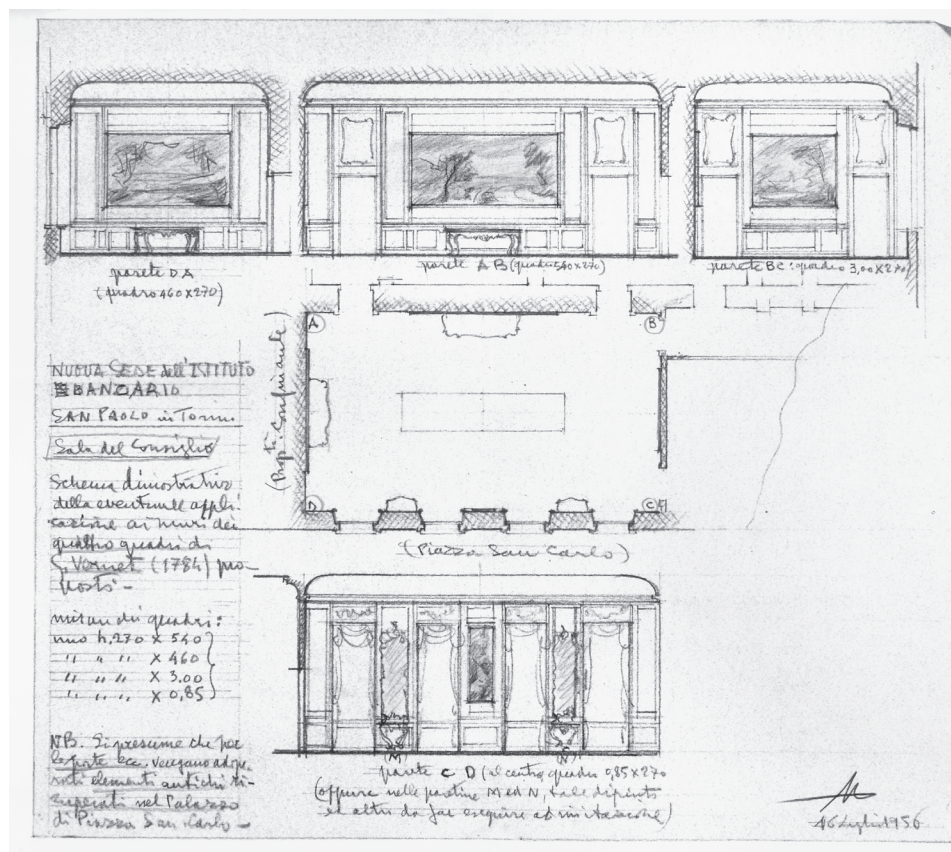 parete DA
(quadro 460x270)
parete AB (quadro 540x270)
parete BC: quadro 3,00x270
A
B
(Propr. Confinante)
D
C
(Piazza San Carlo)
NUOVA SEDE dell'ISTITUTO
BANCARIO
SAN PAOLO in Torino
Sala del Consiglio
Schema dimostrativo
della eventuale appli-
cazione ai muri dei
quattro quadri di
Vernet (1784) pro-
posti -
misure dei quadri:
uno h. 270 x 540
" " " x 460
" " " x 3.00
" " " x 0,85
NB. Si presume che per
le porte ecc. vengano adope-
rati elementi antichi ri-
cuperati nel Palazzo
di Piazza San Carlo -
(M)
(N)
parete C D (al centro quadro 0,85x270
(oppure nelle pareti M ed N, tale dipinto
ed altro da far eseguire ad imitazione)
16 Luglio 1956